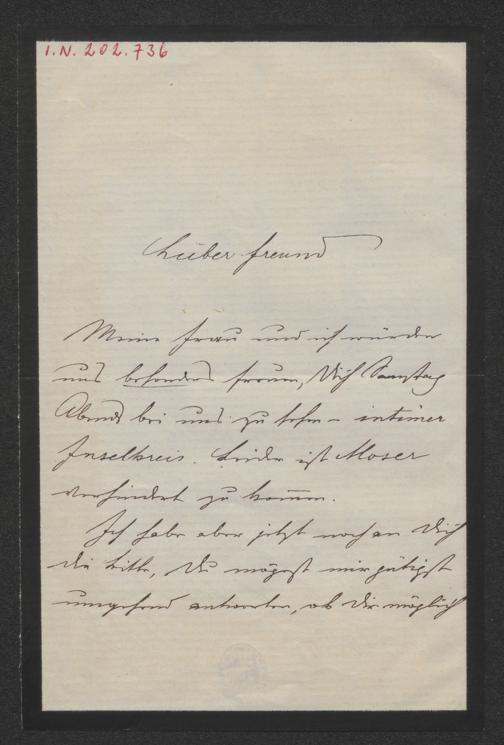 I.N. 202.736
Lieber Freund
Meine Frau und ich würden
uns besonders freuen, Dich Samstag
Abend bei uns zu sehen – intimer
Inselkreis. Leider ist Moser
verhindert zu kom̄en.
Ich habe aber jetzt noch an Dich
die Bitte, Du mögest mir gütigst
umgehend antworten, ob Dir möglich